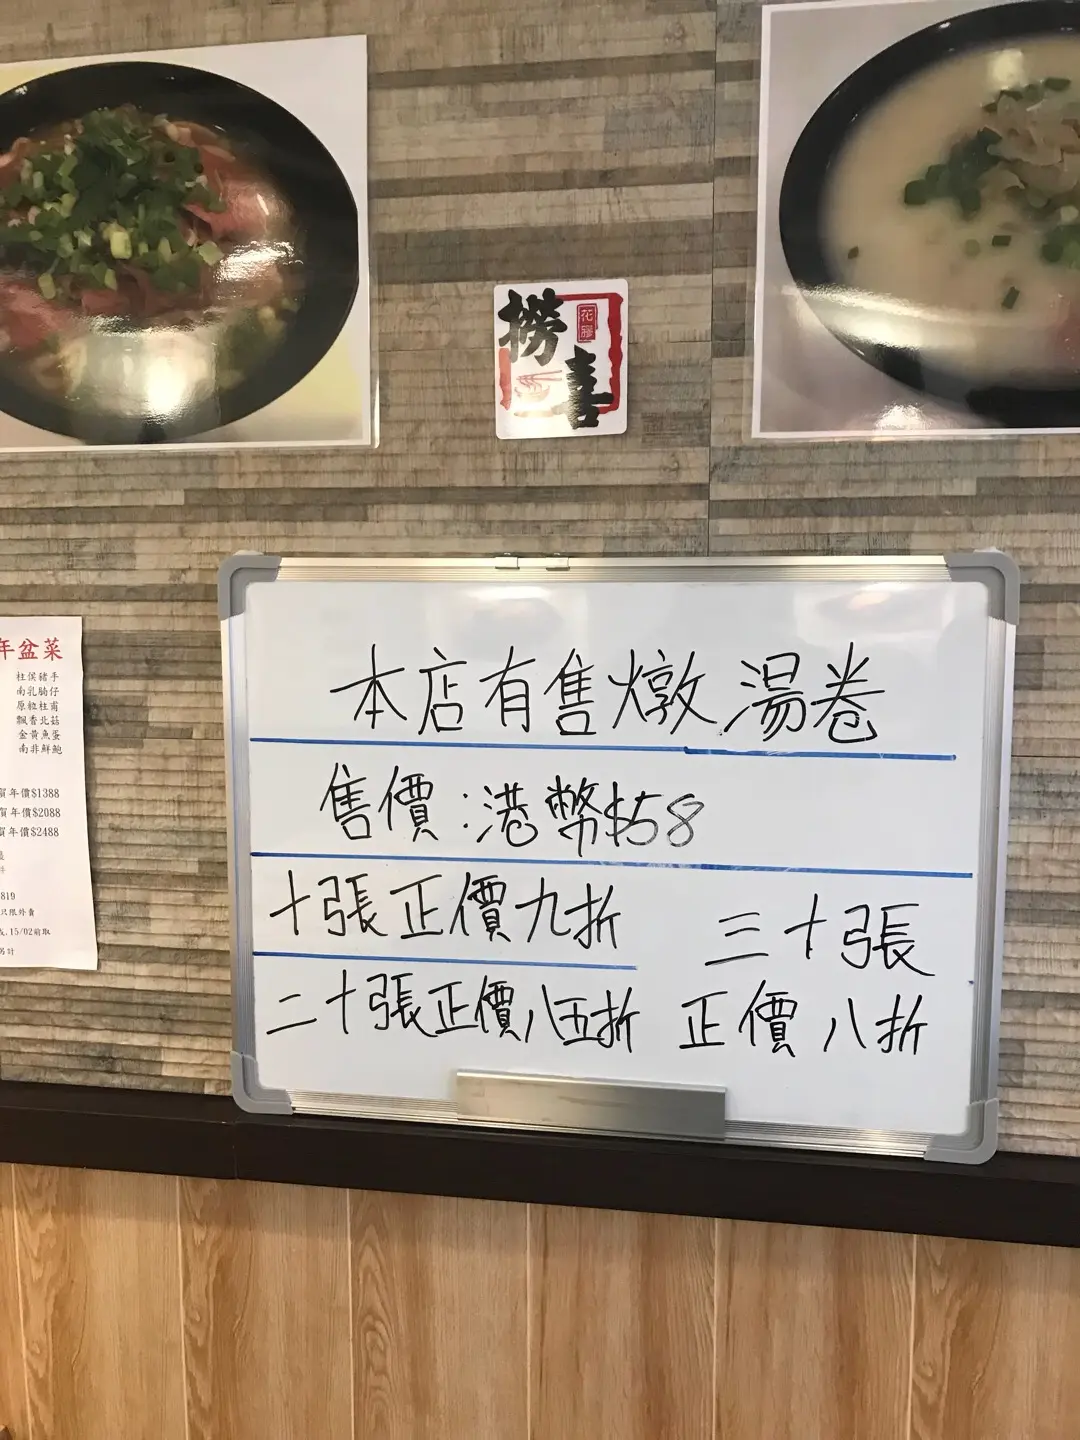 撈喜
花膠
年盆菜
柱侯豬手
南乳腩仔
原粒柱甫
飄香北菇
金黃魚蛋
南非鮮鮑
賀年價$1388
賀年價$2088
賀年價$2488
819
只限外賣
15/02前取
另計
本店有售燉湯卷
售價:港幣$58
十張正價九折
二十張正價八五折
三十張
正價八折